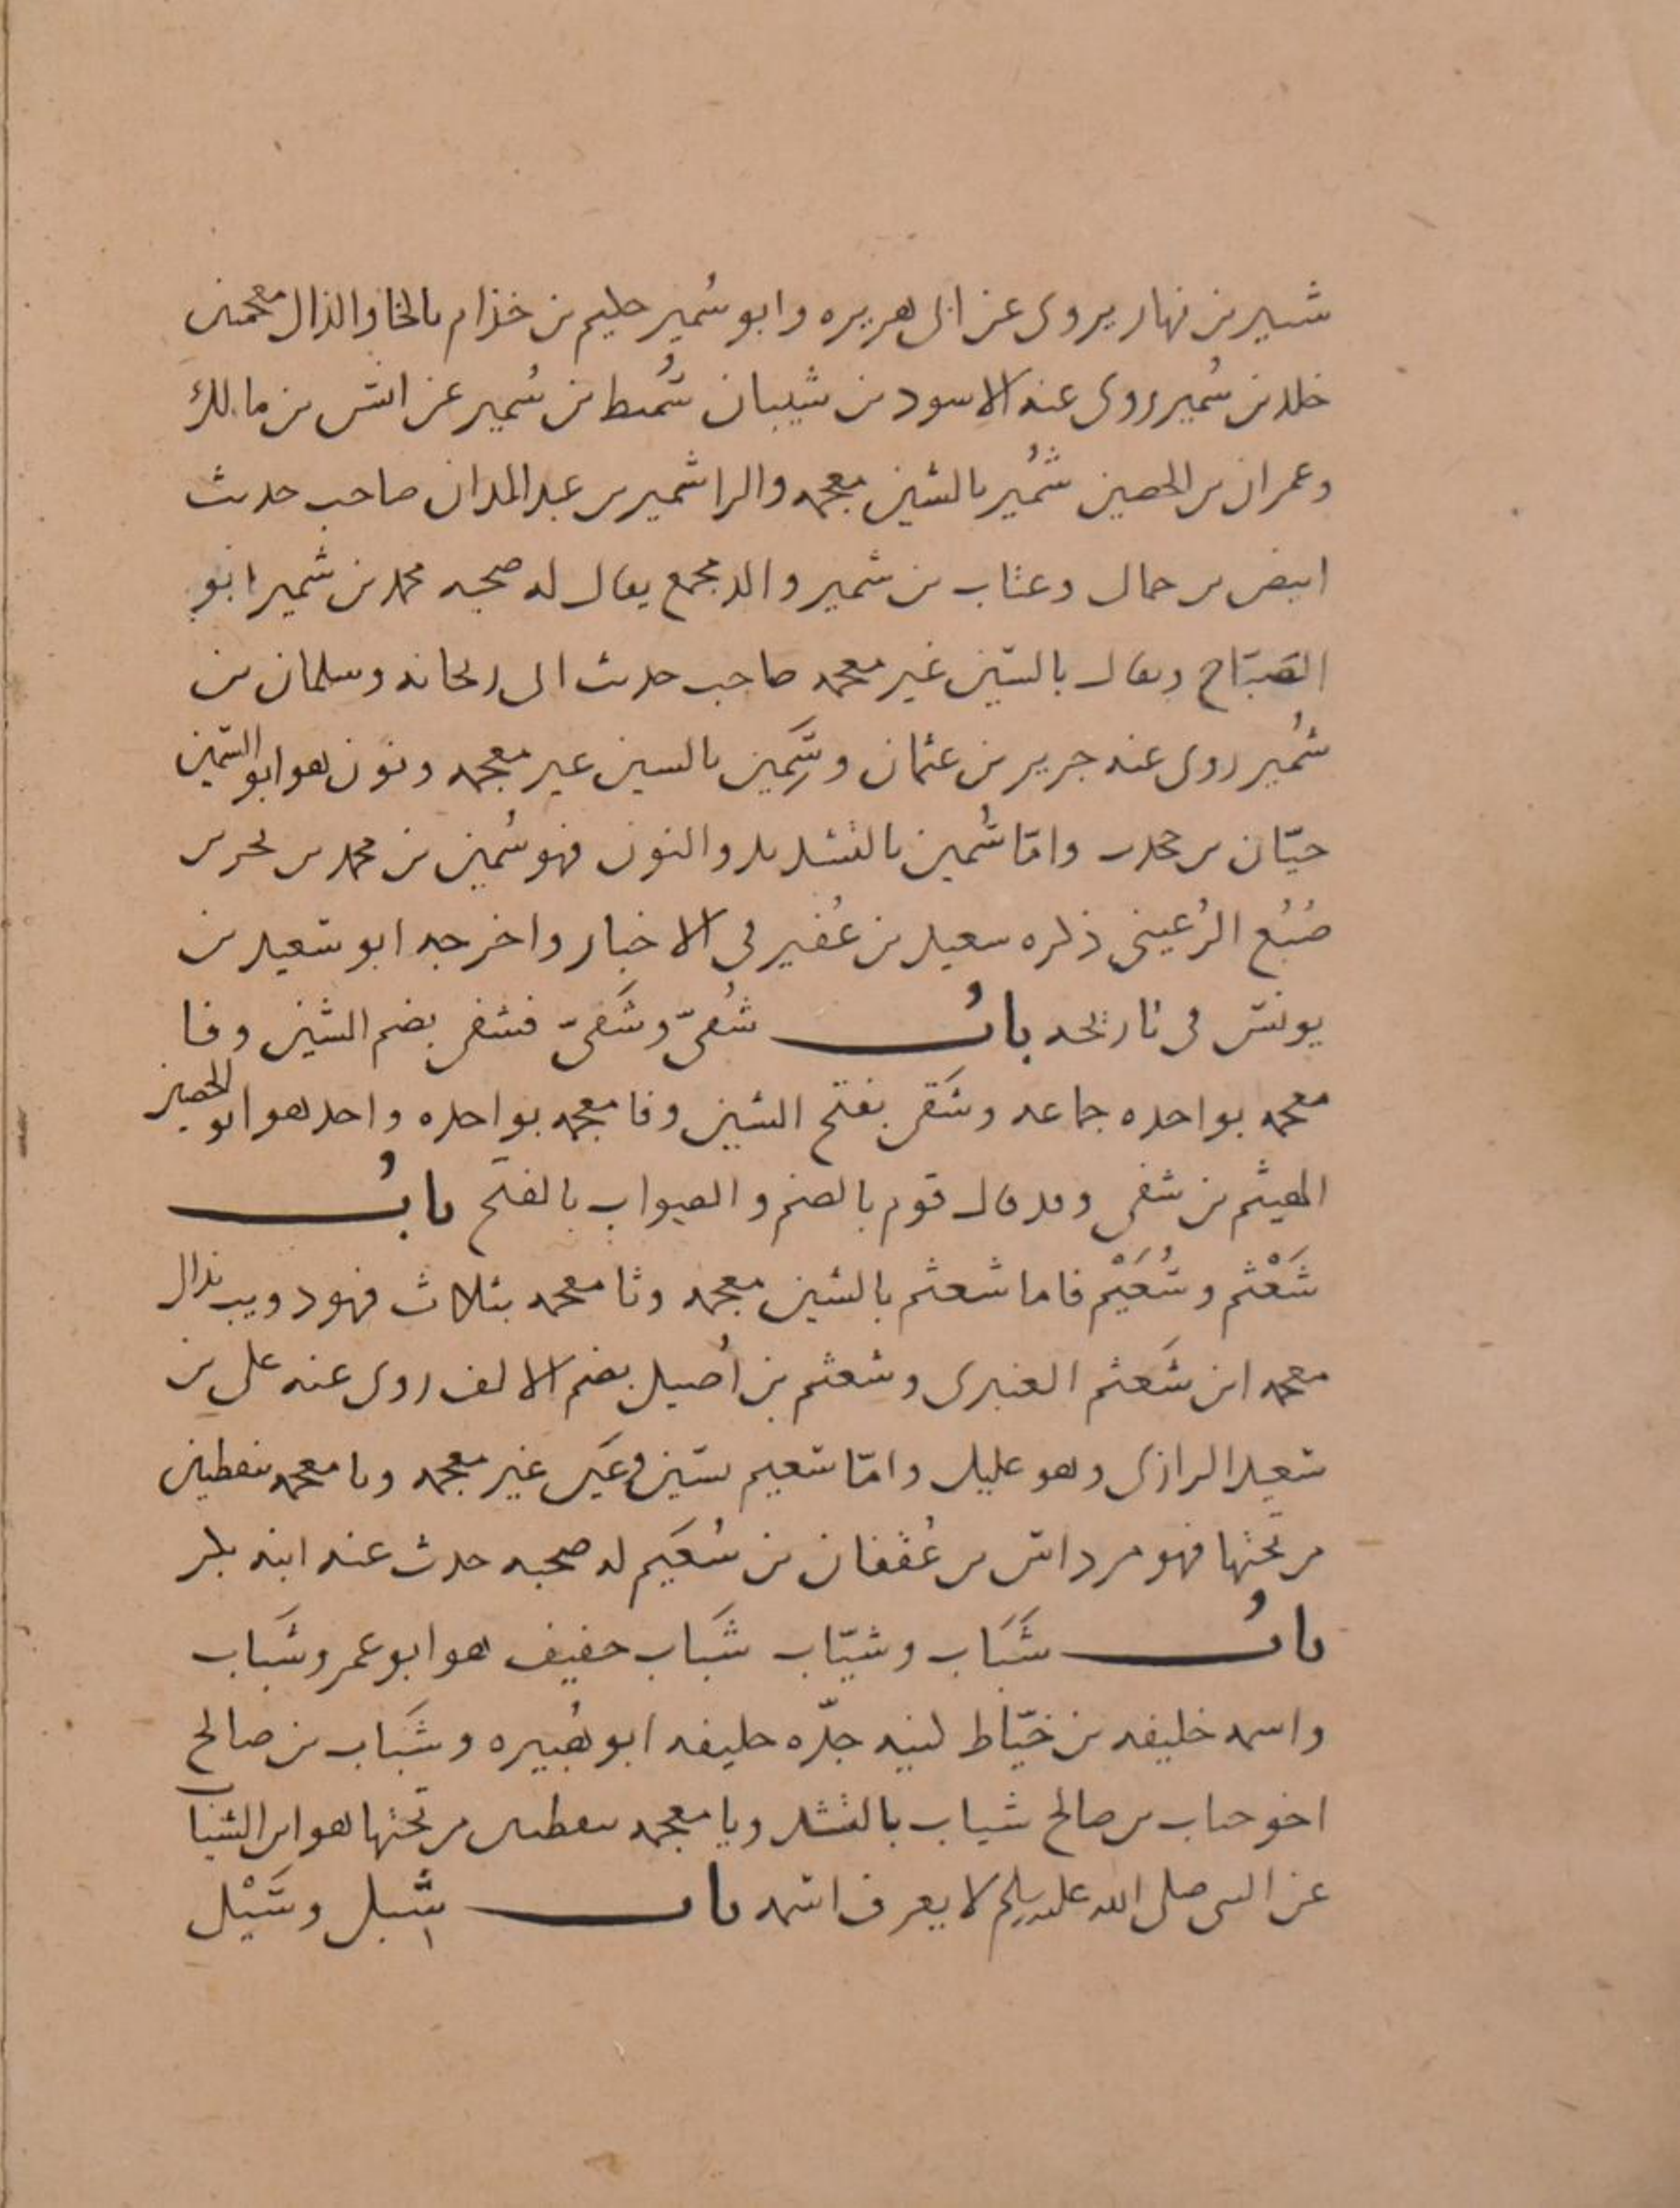 شتير بن نهار يروى عن ابى هريره وابو سُمير حكيم بن خذام بالخا والذال معجمتين
خلد بن سُمير روى عنه الاسود بن شيبان سُميط بن سُمير عن انس بن مالك
وعمران بن الحصين شُمَير بالشين معجمه والرا شمير بن عبد المدان صاحب حديث
ابيض بن حمال وعتاب بن شمير والد مجمع يقال له صحبه محمد بن شمير ابو
الصَبّاح ويقال بالسين غير معجمه صاحب حديث ابى ريحانه وسلمان بن
شُمير روى عنه جرير بن عثمان وسَمين بالسين غير معجمه ونون هو ابو السمين
حيّان بن وامّا سُمين بالتشديد والنون فهو سُمين بن محمد بن
ضُبُع الرُعينى ذكره سعيد بن عُفير فى الاخبار واخرجه ابو سعيد بن
يونس فى تاريخه بابُ شُفىّ وشَفىّ فشفى بضم الشين وفا
معجمه بواحده جماعه وشَفى بفتح الشين وفا معجمه بواحده واحد هو ابو الحصين
الهيثم بن شفى وقد قال قوم بالضم والصواب بالفتح بابُ
شَعْثم وسُعَيْم فاما شعثم بالشين معجمه وثا معجمه بثلاث فهو دويب بذال
معجمه ابن شَعثم العنبرى وشعثم بن اُصيل بضم الالف روى عنه على بن
سعيد الرازى وهو عليل وامّا سعيم بسين وعَين غير معجمه ويا معجمه بنقطتين
من تحتها فهو مرداس بن عُقفان بن سُعَيم له صحبه حدث عنه ابنه بكر
بابُ شَبَاب وشيّاب شَبَاب خفيف هو ابو عمرو شَبَاب
واسمه خليفه بن خيّاط كنيه جدّه خليفه ابو هُبيره وشَبَاب بن صالح
اخو حباب بن صالح شياب بالتشد ويا معجمه بنقطتين من تحتها هو ابن الشياب
عن النبى صلى الله عليه وسلم لا يعرف اسمه باب شِبل وسَيْل